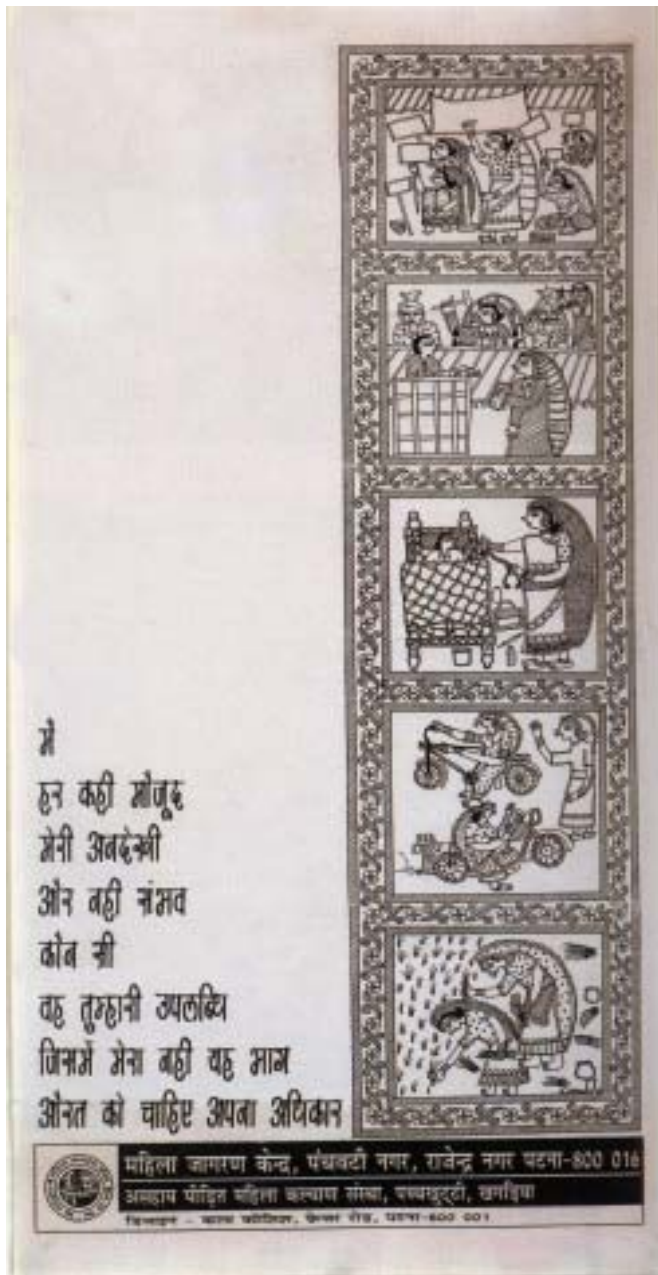 मैं
हर कहीं मौजूद
मेरी अनदेखी
और नहीं संभव
कौन सी
वह तुम्हारी उपलब्धि
जिसमें मेरा नहीं वह भाग
औरत को चाहिए अपना अधिकार
महिला जागरण केन्द्र, पंचवटी नगर, राजेन्द्र नगर पटना-800 016
असहाय पीड़ित महिला कल्याण संस्था, खगड़िया
डिजाइन - फ्रेजर रोड, पटना-800 001